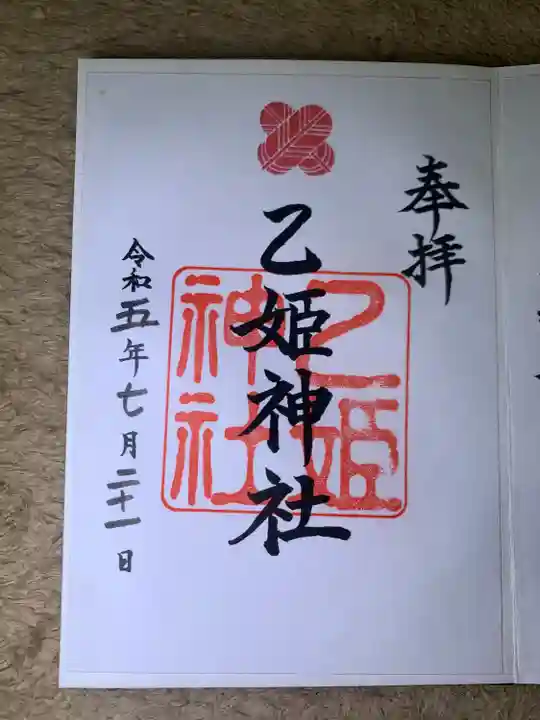 奉拝
乙姫神社
乙姫
神社
令和五年七月二十一日